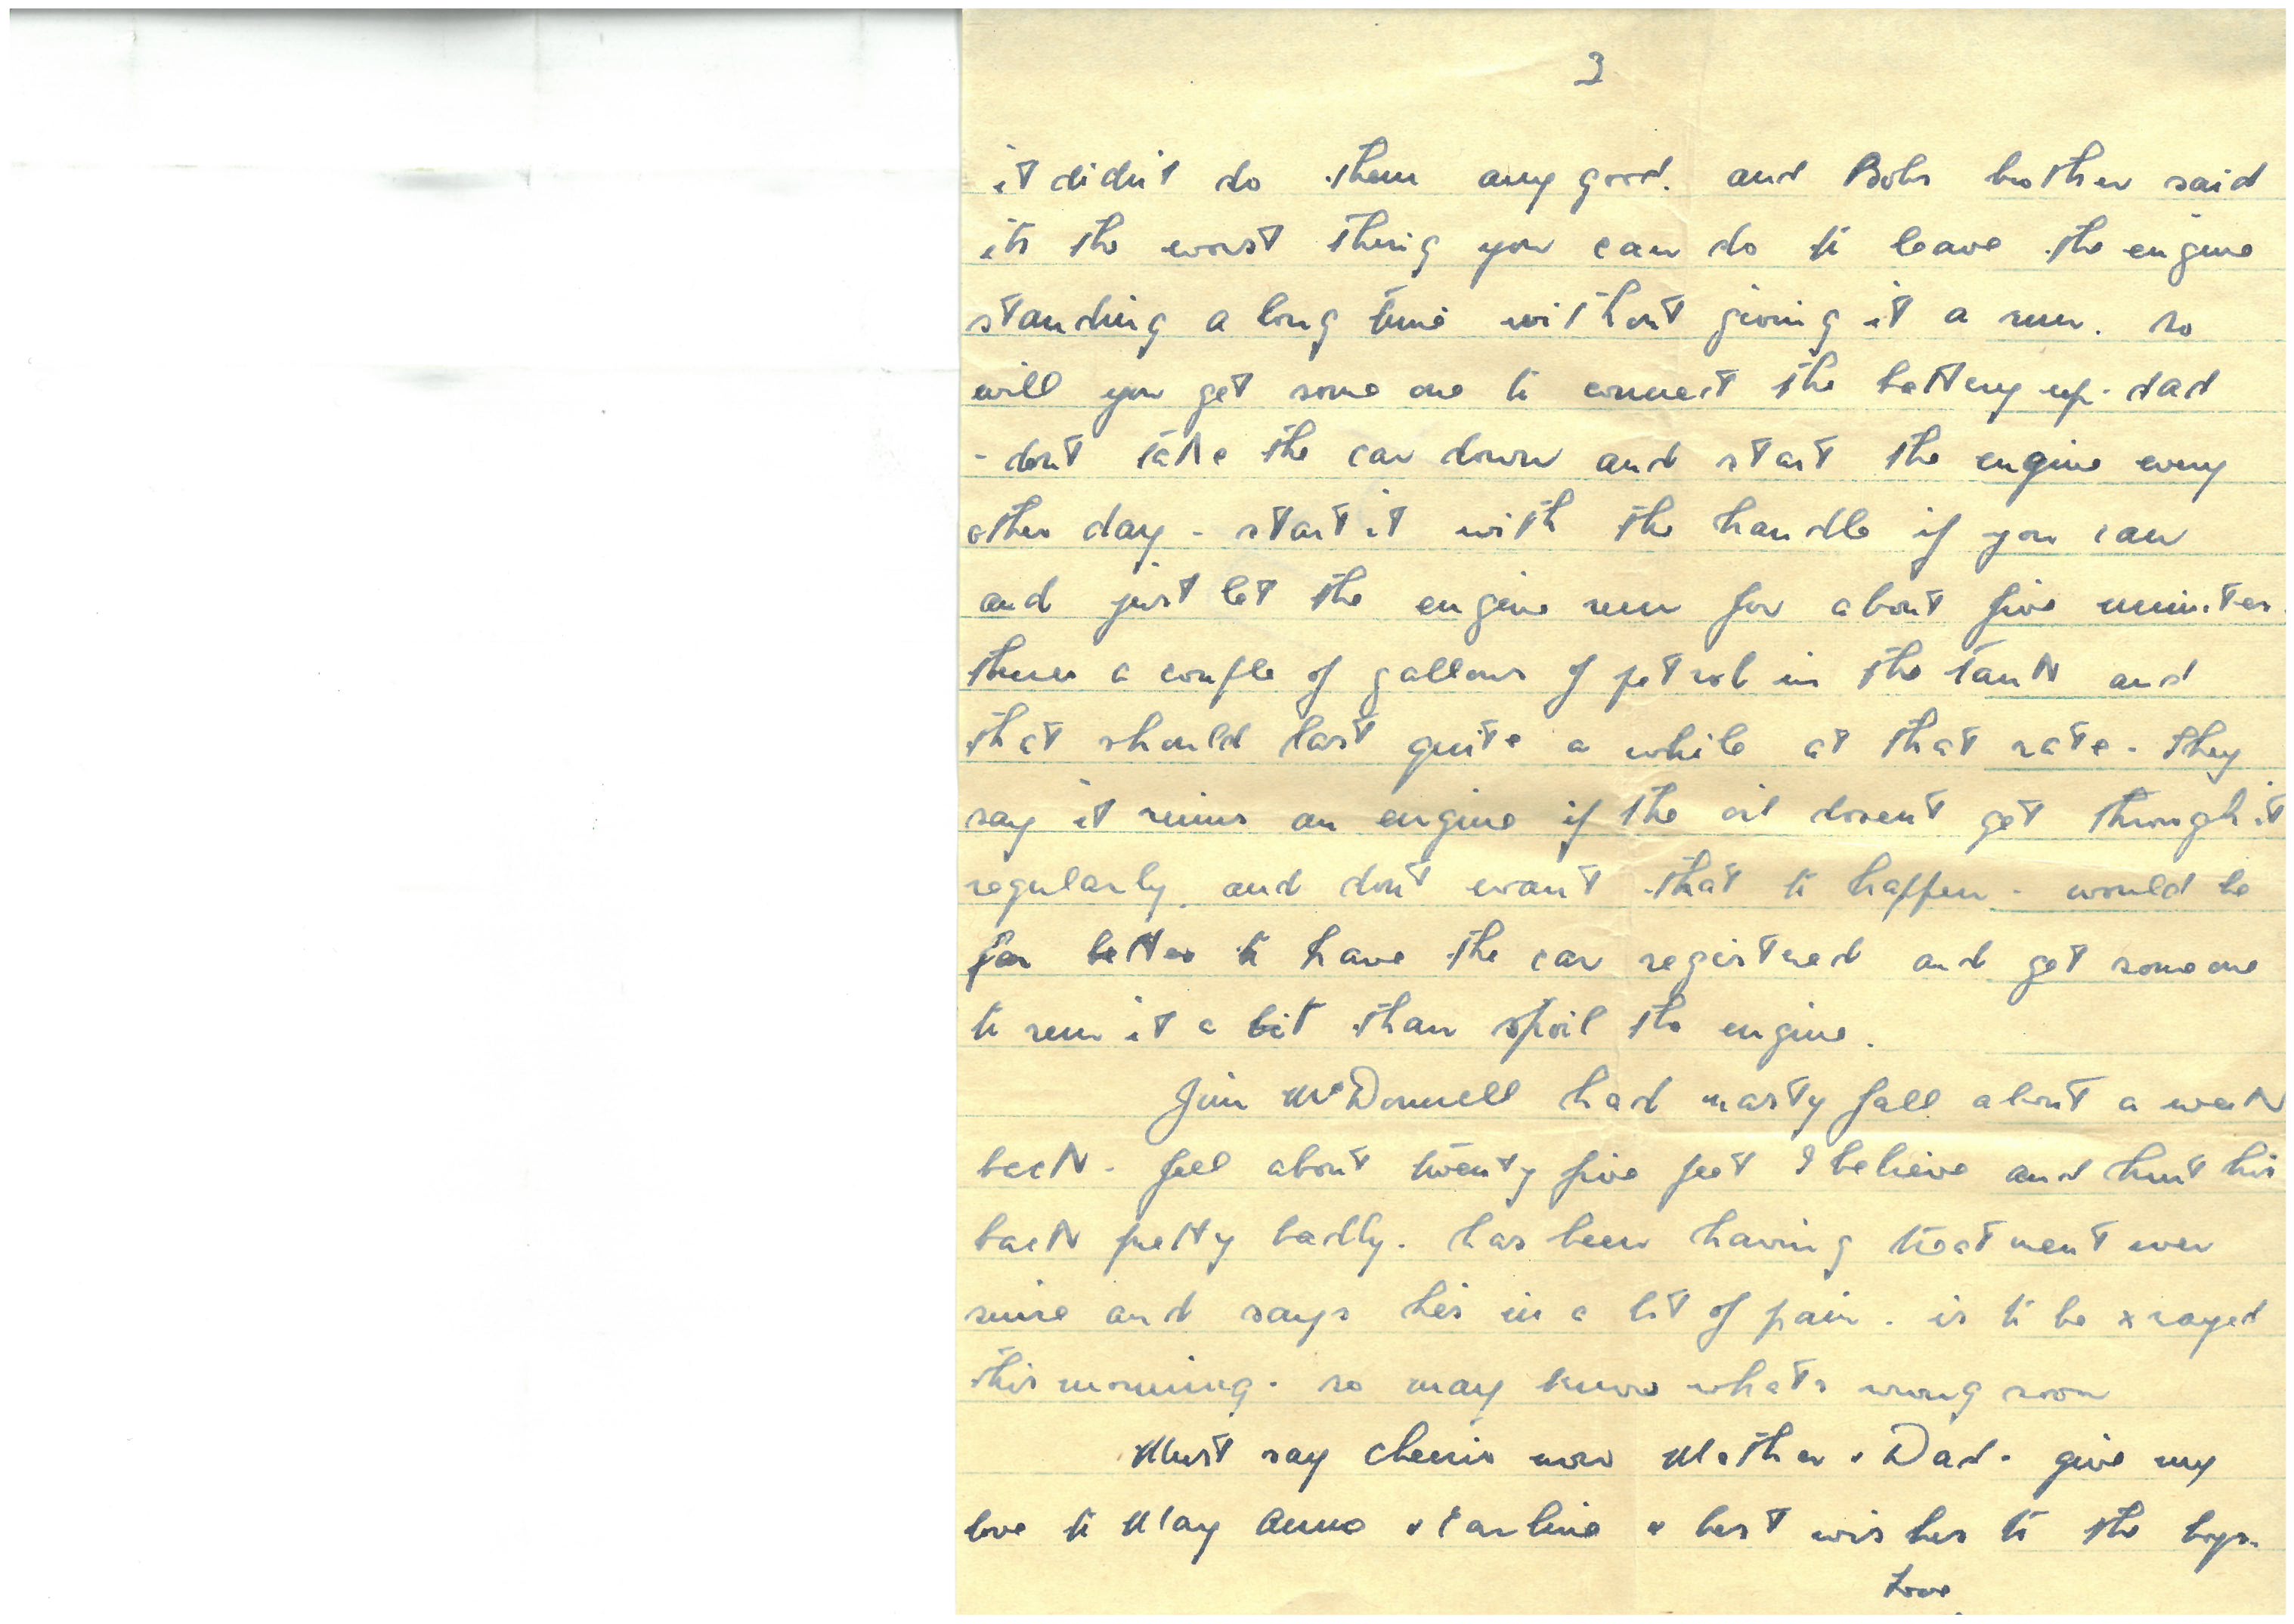 3
it didn't do them any good. and Bobs brother said
its the worst thing you can do to leave the engine
standing a long time without giving it a run. so
will you get some one to connect the battery up. dad
- dont take the car down and start the engine every
other day - start it with the handle if you can
and just let the engine run for about five minutes.
theres a couple of gallons of petrol in the tank and
that should last quite a while at that rate. they
say it ruins an engine if the oil dosent get through it
regularly. and dont want that to happen. would be
far better to have the car registered and get some one
to run it a bit than spoil the engine.
Jim McDonnell had nasty fall about a week
back. fell about twenty five feet I believe and hurt his
back pretty badly. has been having treatment ever
since and says hes in a bit of pain. is to be x rayed
this morning. so may know whats wrong soon
Must say cheerio now Mother & Dad. give my
love to May Anne & Carline & best wishes to the boys.
Love